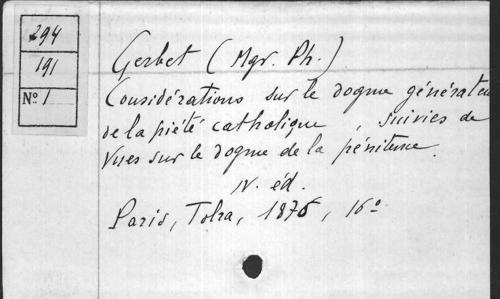 294
191
Nº 1
Gerbet (Mgr. Ph.)
Considérations sur le dogme générateu
de la piété catholique, suivies de
Vues sur le dogme de la pénitence.
N. éd.
Paris, Tolra, 1876, 16º